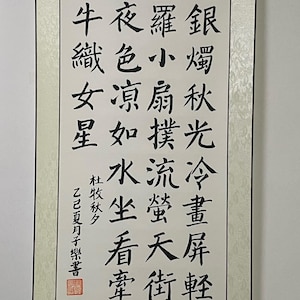 銀燭秋光冷畫屏輕
羅小扇撲流螢天街
夜色涼如水坐看牽
牛織女星
杜牧秋夕
乙巳夏月子樂書